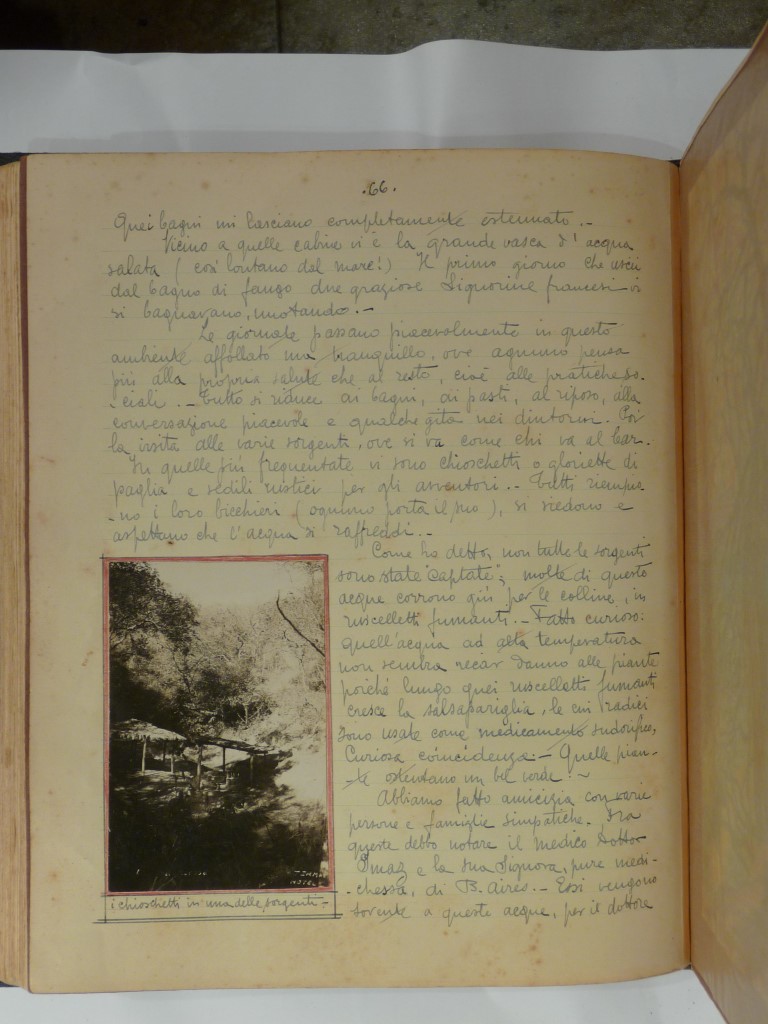 .66.
Quei bagni mi lasciano completamente estenuato.-
Vicino a quelle cabine vi è la grande vasca d'acqua
salata (così lontano dal mare!) Il primo giorno che uscii
dal bagno di fango due graziose Signorine francesi vi
si bagnavano, nuotando.-
Le giornate passano piacevolmente in questo
ambiente affollato ma tranquillo, ove ognuno pensa
più alla propria salute che al resto, cioè alle pratiche so-
-ciali.- Tutto si riduce ai bagni, ai pasti, al riposo, alla
conversazione piacevole e qualche gita nei dintorni. Poi
la visita alle varie sorgenti, ove si va come chi va al bar.
In quelle più frequentate vi sono chioschetti o gloriette di
paglia e sedili rustici per gli avventori.- Tutti riempo-
-no i loro bicchieri (ognuno porta il suo), si siedono e
aspettano che l'acqua si raffreddi.-
Come ho detto, non tutte le sorgenti
sono state "captate"; molte di queste
acque corrono giù per le colline, in
ruscelletti fumanti.- Fatto curioso:
quell'acqua ad alta temperatura
non sembra recar danno alle piante
poiché lungo quei ruscelletti fumanti
cresce la salsapariglia, le cui radici
sono usate come medicamento sudorifico.
Curiosa coincidenza.- Quelle pian-
-te ostentano un bel verde!~
Abbiamo fatto amicizia con varie
persone e famiglie simpatiche. Fra
queste debbo notare il medico Dottor
Imaz e la sua Signora, pure medi-
-chessa, di B. Aires.- Essi vengono
sovente a queste acque, per il dottore
TERMAS
HOTEL
i chioschetti in una delle sorgenti-